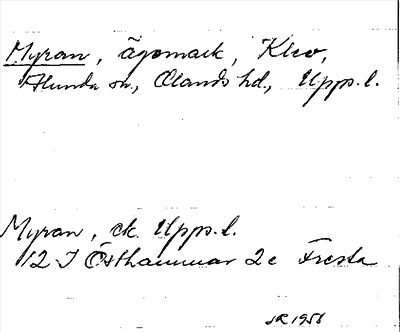 Myran, ägomark, Klev,
Alunda sn., Olands hd., Upps. l.
Myran, ek. Upps. l.
12 I Östhammar 2 c Fresta
SR 1958